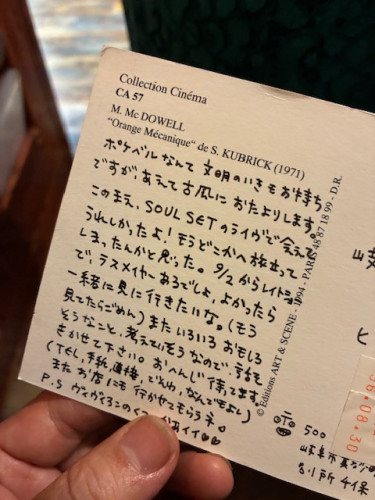 Collection Cinéma
CA 57
M. Mc DOWELL
"Orange Mécanique" de S. KUBRICK (1971)
ポケベルなんて文明のいきもお持ち
ですが、あえて古風におたよりします。
このまえ、SOUL SETのライヴで会えて
うれしかったよ！もうどこかへ旅立って
しまったんかと思った。9/2からレイトショー
で、ラスメイヤーあるでしょ、よかったら
一緒に見に行きたいな。(もう
見てたらごめん)またいろいろおもしろ
そうなこと、考えていそうなので、話を
きかせて下さい。おへんじ待ってます。
(TEL、手紙、直接、でんわ、なんでもよし)
またお店にも行かせてもらうネ。
P.S
© Editions ART & SCENE - 1994 - PARIS 48 87 18 99 - D.R.
岐
ヒ
6.08.30
〒500
岐阜市